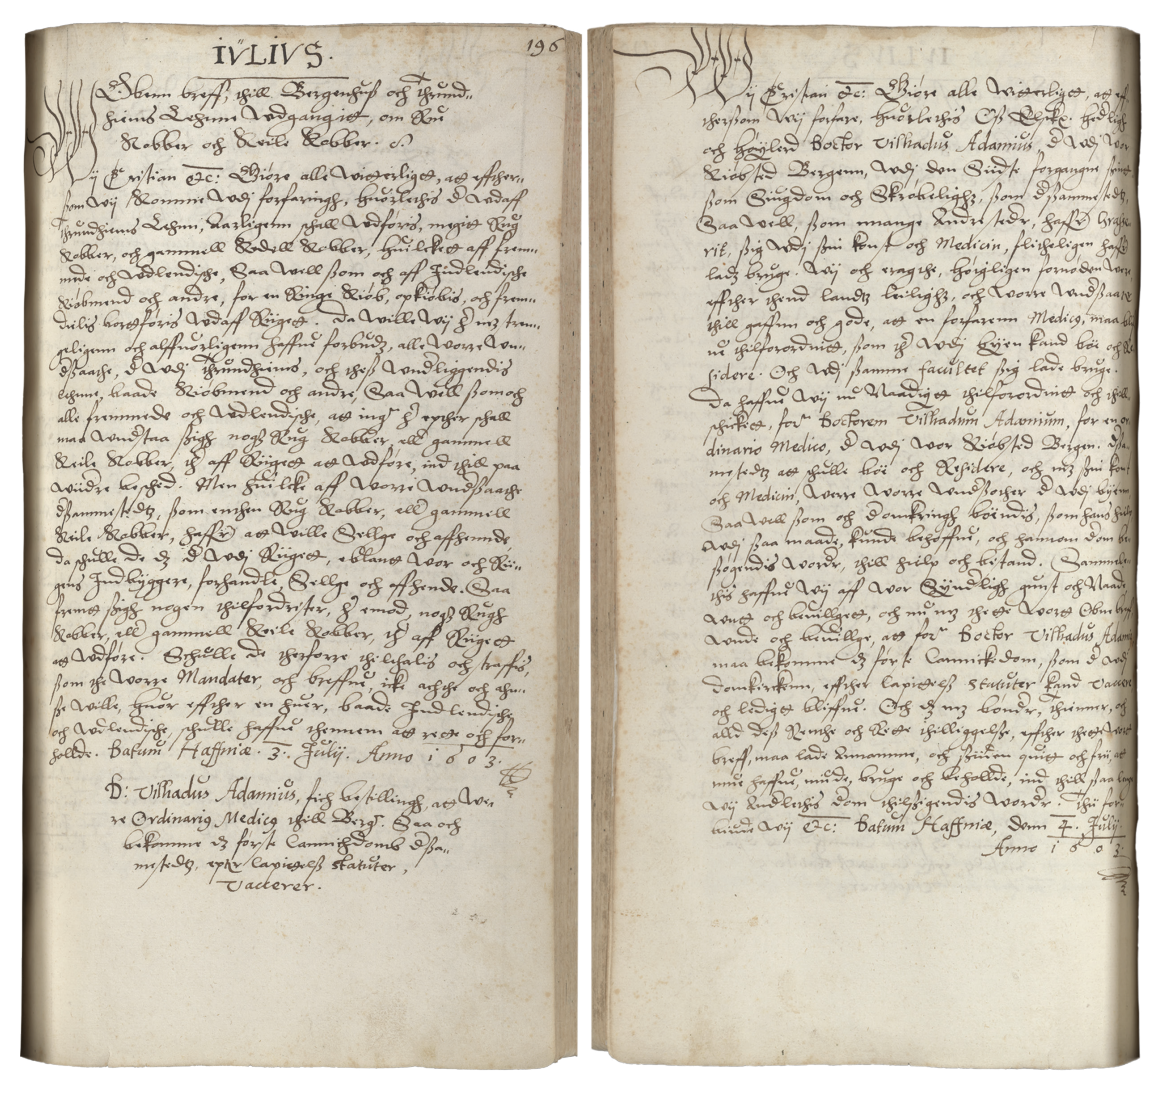 IVLIVS.
196
Obenn breff, thill Bergenhuß och thrund-
hiems Lehnne Wdgangitt, om Ru
Kobber och Reile Kobber.
Wij Cristian etc: Giøre alle witterligtt, att effther-
som Wij Komme Wdj forfaringh, huorledis der Wdaff
Thrundhiems Lehnn, aarligenn schall Wdføris, megitt Rug
Kobber, och gammell Kedell Kobber, huilckett aff frem-
mde och Wdlendische, Saa well ßom och aff Indlendische
Kiøbmend och andre, for en Ringe Kiøb, opkiøbis, och frem-
delis bortføris Wdaff Riigett. Da wille Wij her mz trem-
geligenn och alffuorligenn haffue forbudz, alle Worre Wn-
dßaathe, der Wdj Thrundhiems, och theß Wnderliggendis
Lehnne, baade Kiøbmend och andre, Saa well ßom och
alle fremmede och Wdlendische, att ingen her epther schall
maa Wnderstaa ßigh nogß Rug Kobber, eller gammell
Keile Kobber, ther aff Riigett att Wdføre, ind thill paa
Widre besched. Men huilcke aff Worre Wndßaathe
dersammestedtz, som enthen Rug Kobber, eller gammell
Keile Kobber, haffuer att wille Sellge och affhennde
da schulle de dz der Wdj Riigett, iblantt Wor och Rii-
gens Indbyggere, forhandle, Sellge och affhende. Saa
fremtt ßigh nogen thilfordrister, her emod, nogß Rugh
Kobber, eller gammell Keile Kobber, ther aff Riigett
att Wdføre. Schulle de therforre thilthalis och straffis,
ßom the Worre Mandater, och breffue, icke achthe och an-
ße wille, huor effther en huer, baade Indlendische
och Wdlendische, schulle haffue thennem att rette och for-
hollde. Datum Haffniæ. 3. Julij. Anno 1603.
D: Vilhadus Adamius, fich bestillingh, att We-
re Ordinarius Medicus thill Berg. Saa och
bekomme dz første Cannichdomb dersa-
mestedtz, epter Capitelß Statuter,
Vacerer.
Wij Cristian etc: Giøre alle Witterligtt, att eff
therßom Wij forfare, huorledis Oß Elske. Hederligh
och Høylerd Doctor Vilhadus Adamius, der Wdj Wor
Kiøbsted Bergenn, Wdj den Sidste forgangen
ßom Siugdom och Skrøbelighz, ßom dersammestedtz,
Saa well, ßom mange Andre stedr, haffuer
rit, ßig Wdj ßin konst och Medicin, flitheligen haffuer
ladz bruge. Wij och eragthe, høigligen fornoden Were
effther thend landtz leilighz, och Worre Wndßaate
thill gaffnn och gode, att en forfarenn Medicus, maa bli
ue thilforordnitt, ßom ther Wdj Byen kand boe och Re
sidere. Och Wdj ßamme facultet ßig lade bruge.
Da haffue Wij nu Naadigtt thilforordnitt och thill
schickett, for: Doctorem Vilhadum Adamium, for en or
dinario Medico, der Wdj Wor Kiøbsted Bergen. Dersa
mestedtz att schulle boe och Residere, och mz ßin konst
och Medicin, Werre Worre Wndßother der Wdj byenn
Saa well ßom och omkringh boendis, ßom hans hielp
Wdj ßaa maade, kunde behoffue, och hannom om be
søgendis Worder, thill hielp och bistand. Sammele
this haffue Wij aff Wor Syndligh gunst och Naade
Wntt och beuillgett, och nu mz thette Wortt Obne breff
Wnde och beuillge, att for: Doctor Vilhadus Adami
maa bekomme dz første Cannickedom, ßom der Wdj
Domkircken, effther Capitelß Statuter kand Vacere
och ledigtt bliffue. Och dz mz bønder, thienner, och
alld deß Renthe och Rette thilliggelße, effther thette Wortt
breff, maa lade Annamme, och ßiiden quitt och frij, att
mue haffue, niude, bruge och beholde, ind thill ßaa lenge
Wij Anderledis dom thilßigendis Worder. Thii for
biude Wij etc: Datum Haffniæ, denn 4. Julij.
Anno 1603.